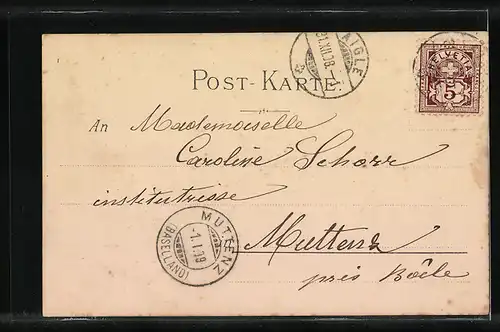 AIGLE
31.XII.98.-1
HELVETIA
5
POST-KARTE.
An Mademoiselle
Caroline Schorr
institutrisse
MUTTENZ
-1.I.99
(BASELLAND)
Muttenz
près Bâle